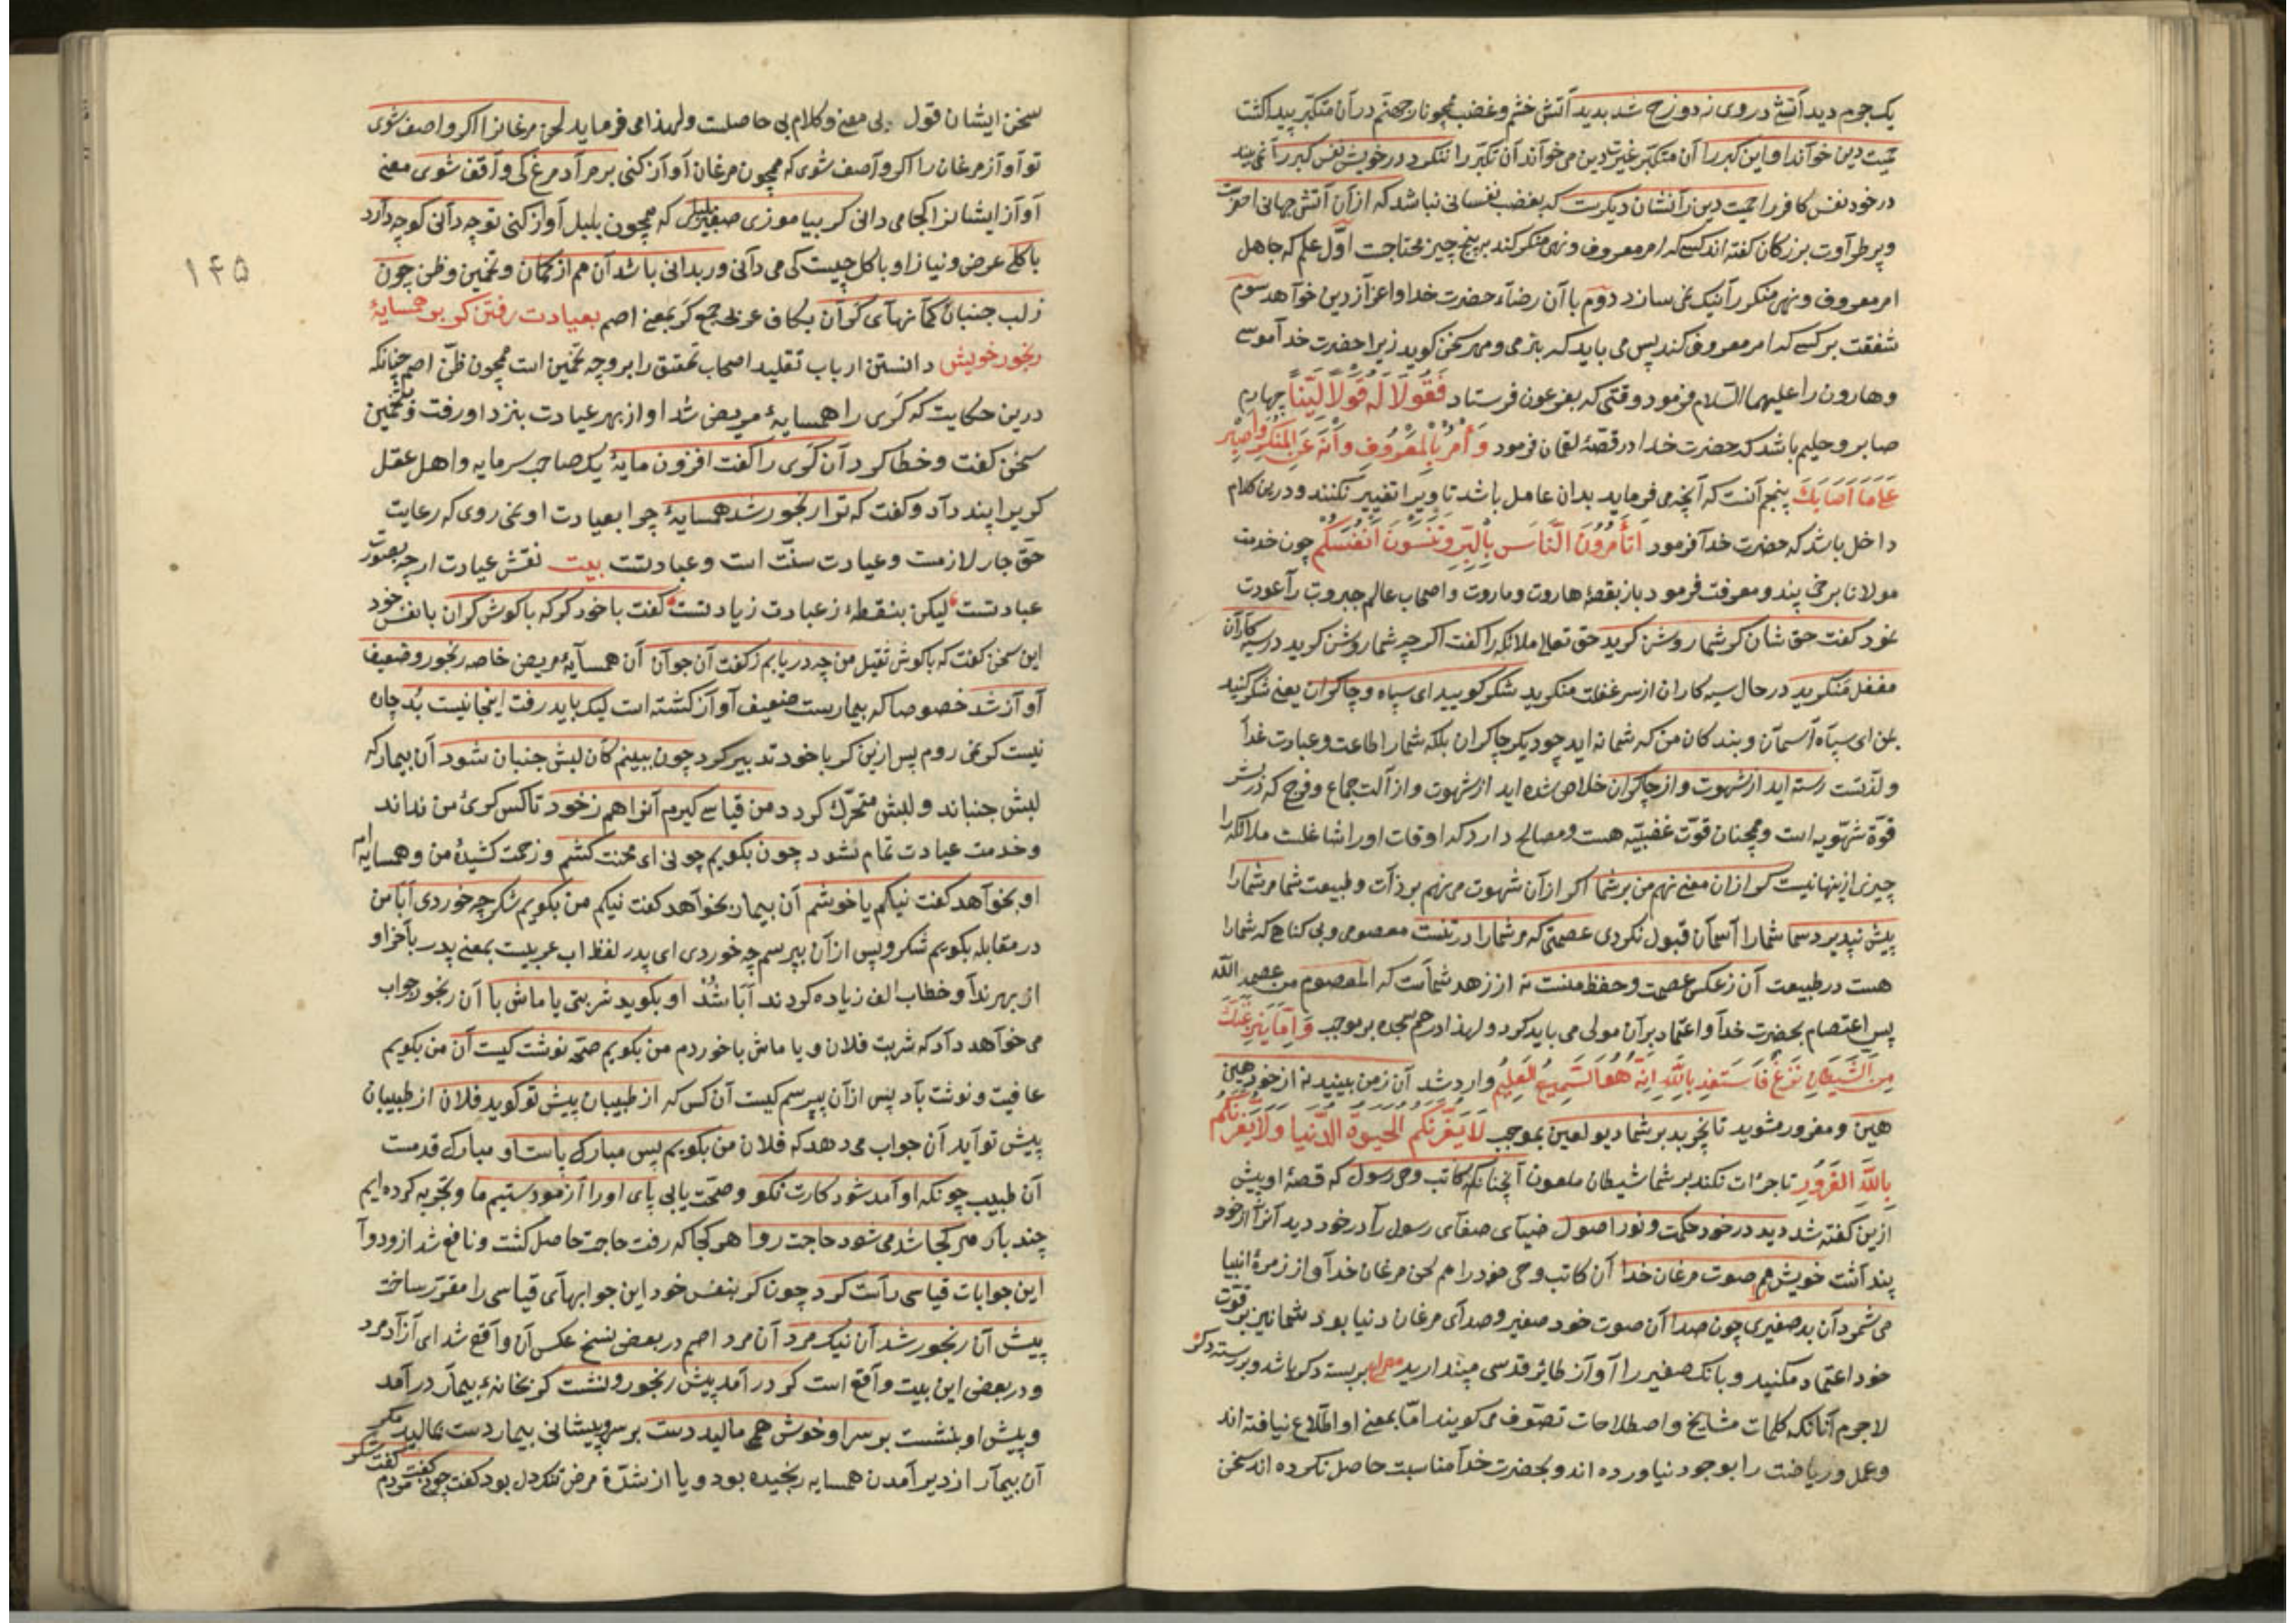 یک جرم دید آتشی در وی ز دوزخ شد بدید آتش خشم و غضب همچو نار جهنم در آن متکبر پیدا کشت
حمیت دین خواند او این کبر را آن متکبر غیرت دین می خواند آن تکبر را ننکرد در خویش نفس کبر را نمی بیند
در خود نفس کافر را حمیت دین را نشان دیکرست که بغضب نفسانی نباشد که از آن آتش جهانی اخضرست
و پر طراوت بزرکان کفته اند کسی که امر معروف و نهی منکر کند بر پنج چیز محتاجت اول علم که جاهل
امر معروف و نهی منکر را نیک نمی سازد دوم با آن رضاء حضرت خدا و اعزاز دین خواهد سوم
شفقت بر کسی که امر معروف کند پس می باید که بنرمی و مهر سخن کوید زیرا حضرت خدا موسی
و هارون را علیهما السلام فرمود وقتی که بفرعون فرستاد فَقُولَا لَهُ قَوْلًا لَيِّنًا چهارم
صابر و حلیم باشد که حضرت خدا در قصهٔ لقمان فرمود وَأْمُرْ بِالْمَعْرُوفِ وَانْهَ عَنِ الْمُنْكَرِ وَاصْبِرْ
عَلَى مَا أَصَابَكَ پنجم آنست که آنچه می فرماید بدان عامل باشد تا ویرا تغییر نکنند و درین کلام
داخل باشد که حضرت خدا فرمود أَتَأْمُرُونَ النَّاسَ بِالْبِرِّ وَتَنْسَوْنَ أَنْفُسَكُمْ چون خدمت
مولانا برخی پند و معرفت فرمود باز بقصهٔ هاروت و ماروت و اصحاب عالم جبروت را عودت
نمود کفت حق شان کر شما روشن کرید حق تعالی ملائکه را کفت اکرچه شما روشن کرید در سیه کاران
مغفل منکرید در حال سیه کاران از سر غفلت منکرید شکر کویید ای سپاه و چاکران یعنی شکر کنید
بمن ای سپاه آسمان و بندکان من که شما نه اید چو دیکر چاکران بلکه شما را طاعت و عبادت غدا
و لذتست رسته اید از شهوت و از چاکران خلاص شده اید از شهوت و از آلت جماع و فرج که درش
قوة شهویه است و همچنان قوت غضبیه هست و مصالح دارد که اوقات او را شاغلست ملائکه را
چیزی ازینها نیست کر از ان معنی نهم من بر شما اکر از آن شهوت می نهم بر ذات و طبیعت شما مر شما را
بیش نپذیرد سما شما را آسمان قبول نکردی عصمتی که مر شما را در تنست معصومی و بی کناهی که شما را
هست در طبیعت آن ز عکس عصمت و حفظ منست نه از زهد شماست که المعصوم من عصمه الله
پس اعتصام بحضرت خدا و اعتماد بر آن مولی می باید کرد و لهذا در حم سجده بر موجب وَإِمَّا يَنْزَغَنَّكَ
مِنَ الشَّيْطَانِ نَزْغٌ فَاسْتَعِذْ بِاللَّهِ إِنَّهُ هُوَ السَّمِيعُ الْعَلِيمُ وارد شد آن ز من بینید نه از خود هین
هین و مغرور مشوید تا نچربد بر شما دیو لعین بموجب لَا يَغُرَّنَّكُمُ الْحَيَوةُ الدُّنْيَا وَلَا يَغُرَّنَّكُمْ
بِاللَّهِ الْغَرُورُ تا جرات نکند بر شما شیطان ملعون آنچنانکه کاتب وحی رسول که قصهٔ او پیش
ازین کفته شد دید در خود حکمت و نور اصول ضیای صفای رسول را در خود دید آنرا از خود
پنداشت خویش هم صوت مرغان خدا آن کاتب وحی خود را هم لحن مرغان خدا و از زمرهٔ انبیا
می شمرد آن بد صفیری چون صدا آن صوت خود صفیر و صدای مرغان دنیا بود شما نیز بر قوت
خود اعتماد مکنید و بانک صفیر را آواز طائر قدسی مپندارید مصراع بربسته دکر باشد و بررسته دکر
لاجرم آنانکه کلمات مشایخ و اصطلاحات تصوف می کویند اما بمعنی او اطلاع نیافته اند
و عمل و ریاضت را بوجود نیاورده اند و بحضرت خدا مناسبت حاصل نکرده اند سخن
سخن ایشان قول بی معنی و کلام بی حاصلست و لهذا می فرماید لحن مرغانرا اکر واصف شوی
تو آواز مرغان را اکر واصف شوی که همچون مرغان آواز کنی بر مراد مرغ کی واقف شوی معنی
آواز ایشانرا کجا می دانی کر بیاموزی صفیر بلبلی که همچون بلبل آواز کنی تو چه دانی کو چه دارد
با کلی عرض و نیاز او با کل چیست کی می دانی ور بدانی باشد آن هم از کمان و تخمین و ظن چون
ز لب جنبان کمانهای کران بکاف عربی جمع کر بمعنی اصم بعیادت رفتن کر بر همسایهٔ
رنجور خویش دانستن ارباب تقلید اصحاب تحقیق را بر وجه تخمین است همچون ظن اصم چنانکه
درین حکایت که کری را همسایهٔ مریض شد او از بهر عیادت بنزد او رفت و بتخمین
سخن کفت و خطا کرد آن کری را کفت افزون مایهٔ یک صاحب سرمایه و اهل عقل
کریرا پند داد و کفت که ترا رنجور شد همسایهٔ چرا بعیادت او نمی روی که رعایت
حق جار لازمست و عیادت سنت است و عبادتست بیت نقش عیادت ارچه بصورت
عبادتست لیکن بنقطهٔ ز عبادت زیادتست کفت با خود کر که با کوش کران با نفس خود
این سخن کفت که با کوش ثقیل من چه دریابم ز کفت آن جوان آن همسایهٔ مریض خاصه رنجور و ضعیف
آواز شد خصوصا که بیمارست ضعیف آواز کشته است لیک باید رفت اینجا نیست بد چاره
نیست کر نمی روم پس ازین کر با خود تدبیر کرد چون ببینم کان لبش جنبان شود آن بیمار که
لبش جنباند و لبش متحرک کردد من قیاسی کیرم آنرا هم ز خود تا کس کری من نداند
و خدمت عیادت تمام نشود چون بکویم چونی ای محنت کشم و زحمت کشیدهٔ من و همسایه ام
او بخواهد کفت نیکم یا خوشم آن بیمار بخواهد کفت نیکم من بکویم شکر چه خوردی ابا من
در مقابله بکویم شکر و پس از آن بپرسم چه خوردی ای پدر لفظ اب عربیست بمعنی پدر بآخر او
از بهر ندا و خطاب الف زیاده کردند ابا شد او بکوید شربتی یا ماش با آن رنجور جواب
می خواهد داد که شربت فلان و یا ماش با خوردم من بکویم صح نوشت کیست آن من بکویم
عافیت و نوشت باد پس از آن بپرسم کیست آن کس که از طبیبان پیش تو کوید فلان از طبیبان
پیش تو آید آن جواب می دهد که فلان من بکویم بس مبارک پاست او مبارک قدمست
آن طبیب چونکه او آمد شود کارت نکو و صحت یابی پای او را آزمودستیم ما و تجربه کرده ایم
چند بار هر کجا شد می شود حاجت روا هر کجا که رفت حاجت حاصل کشت و نافع شد ازو دوا
این جوابات قیاسی راست کرد چون کر بنفس خود این جوابهای قیاسی را مقرر ساخت
پیش آن رنجور شد آن نیک مرد آن مرد اصم در بعض نسخ عکس آن واقع شد ای آزاد مرد
و در بعضی این بیت واقع است کر در آمد پیش رنجور و نشست کر بخانهٔ بیمار در آمد
و پیش او بنشست بر سر او خوش همی مالید دست بر سر و پیشانی بیمار دست بمالید مکر
آن بیمار از دیر آمدن همسایه رنجیده بود و یا از شدة مرض تنکدل بود کفت چونی کفت مردم کفت شکر
۱۴۵